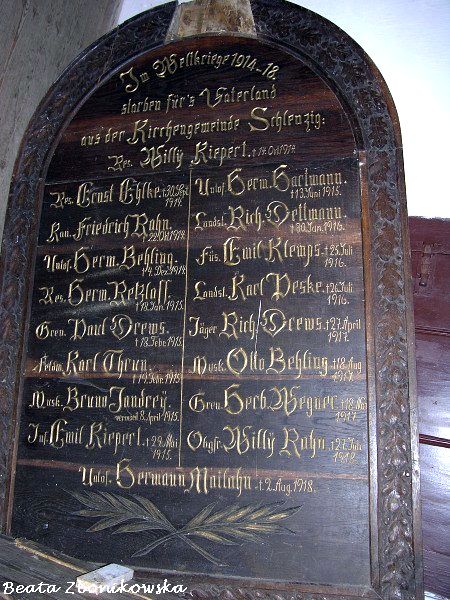 Im Weltkriege 1914-18.
starben für's Vaterland
aus der Kirchengemeinde Schlenzig:
Res. Willy Kiepert. † 14. Oct. 1914
Res. Ernst Ehlke. † 30. Sept. 1914.
Kan. Friedrich Rahn. † 22. Okt. 1914.
Untof. Herm. Behling. † 4. Dez. 1914.
Res. Herm. Retzlaff. † 18. Jan. 1915.
Gren. Paul Drews. † 18. Febr. 1915.
Karl Thrun. † 19. 1915.
Musk. Bruno Jandrey. vermisst 8. April 1915.
Inf. Emil Kiepert. † 29. Mai 1915.
Untof. Herm. Hartmann. † 13. Juni 1915.
Landst. Rich. Dettmann. † 30. Jan. 1916.
Füs. Emil Klemps. † 25. Juli 1916.
Landst. Karl Peske. † 26. Juli 1916.
Jäger Rich. Drews. † 27. April 1917.
Musk. Otto Behling. † 18. Aug. 1917.
Gren. Herb. Wegner. † 18. 1917.
Obgfr. Willy Rahn. † 27. Juli 1918.
Untof. Hermann Mailahn. † 2. Aug. 1918.
Beata Zbonikowska